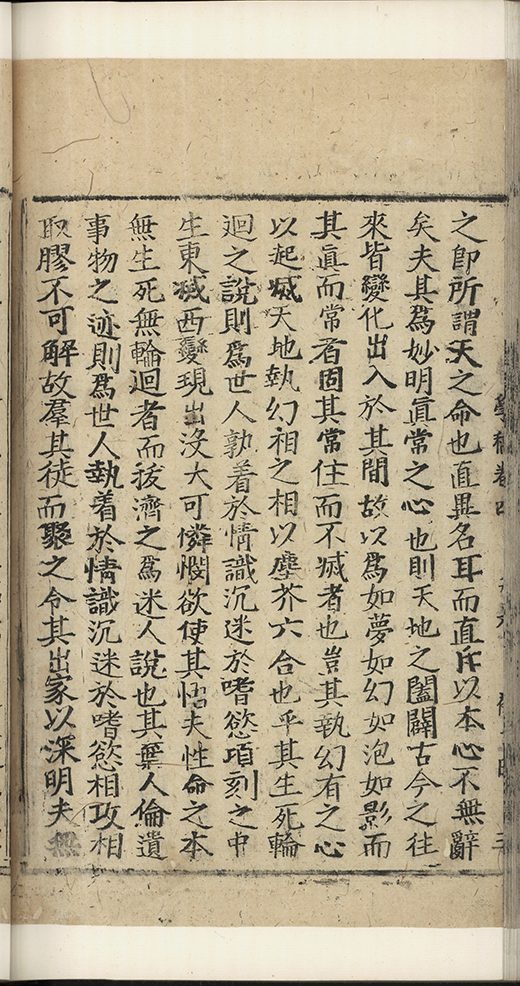 學稿卷四
之卽所謂天之命也直異名耳而直斥以本心不無辭
矣夫其爲妙明眞常之心也則天地之闔闢古今之往
來皆變化出入於其間故以爲如夢如幻如泡如影而
其眞而常者固其常住而不㓕者也豈其執幻有之心
以起㓕天地執幻相之相以塵芥六合也乎其生死輪
迴之說則爲世人執着於情識沉迷於嗜慾頃刻之中
生東㓕西變現出沒大可憐憫欲使其悟夫性命之本
無生死無輪迴者而拔濟之爲迷人說也其棄人倫遺
事物之迹則爲世人執着於情識沉迷於嗜慾相攻相
取膠不可解故羣其徒而聚之令其出家以深明夫無